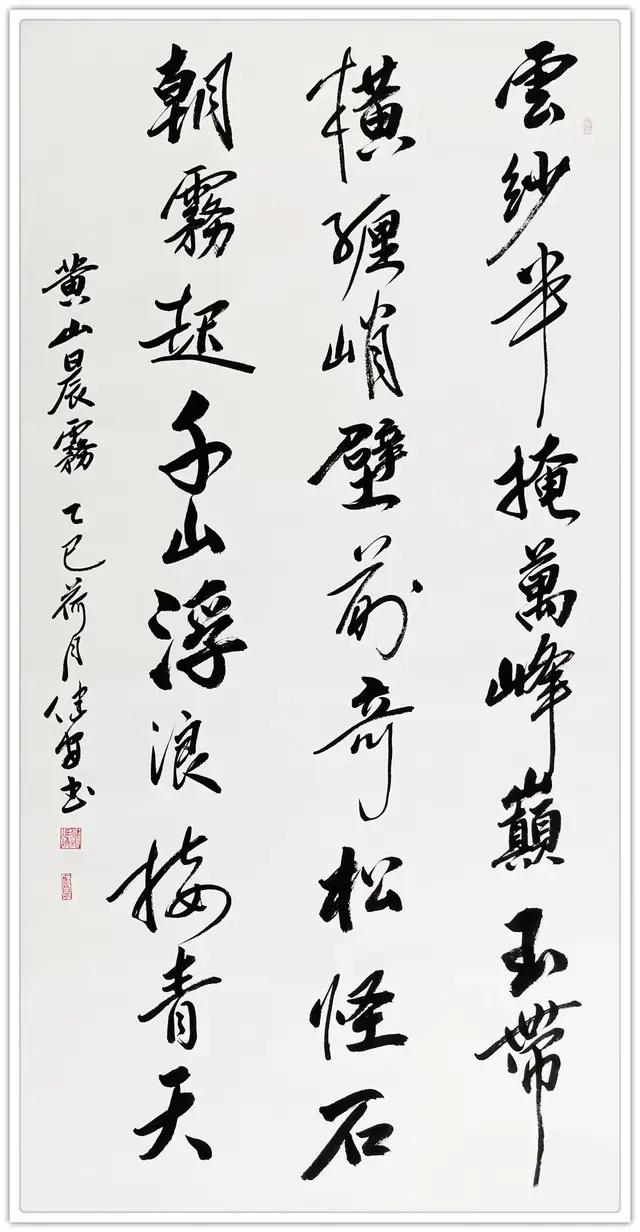 雲紗半掩萬峰巔玉帶
橫纏峭壁前奇松怪石
朝霧起千山浮浪接青天
黃山晨霧 乙巳荷月健安書